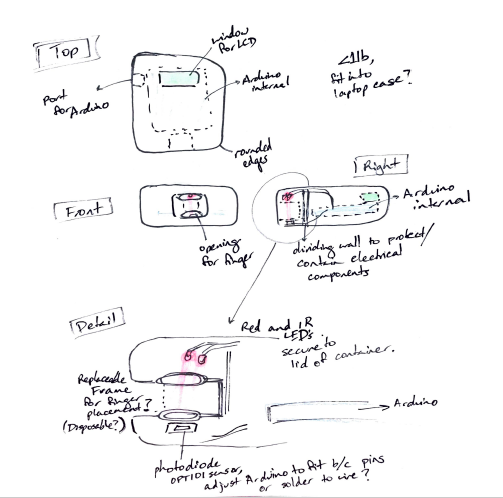 Top
window
for LCD
Port
for Arduino
Arduino
internal
<1lb,
fit into
laptop case?
rounded
edges
Right
Front
opening
for finger
Arduino
internal
dividing wall to protect/
contain electrical
components
Detail
Red and IR
LED's
secure to
lid of container.
Replaceable
Frame
for finger
placement?
(Disposable?)
Arduino
photodiode
OPT101 sensor,
adjust Arduino to fit b/c pins
or solder to wire?